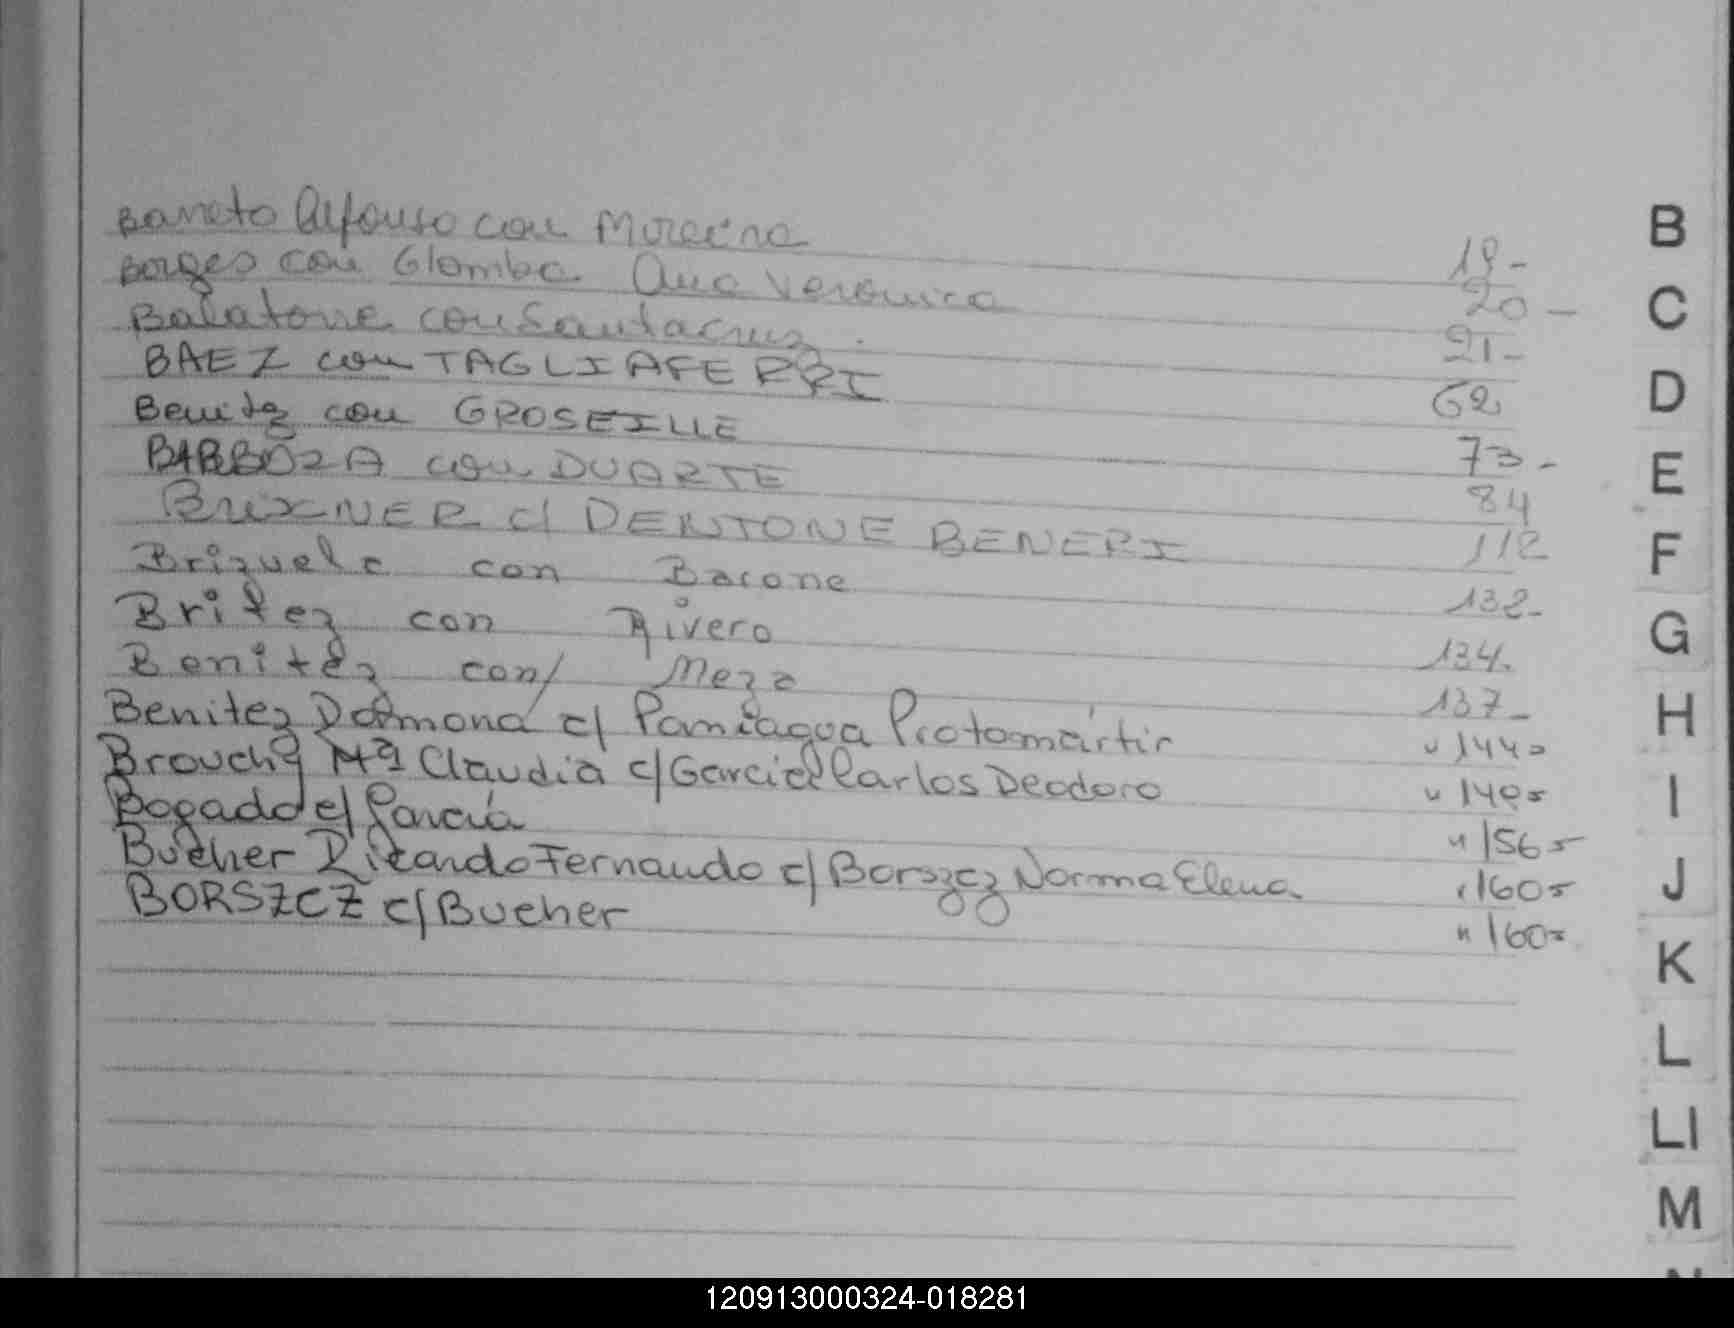 Barreto Alfonso con Moreira 19-
Borges con Glomba Ana Veronica 20-
Balatone con Santacruz. 21-
BAEZ con TAGLIAFERRI 62
Benitez con GROSEILLE 73-
BARBOZA con DUARTE 84
BRIXNER c/ DENTONE BENERI 112
Brizuela con Barone 132-
Britez con Rivero 134.
Benitez con/ Meza 137-
Benitez c/ Paniagua Protomártir " 144=
Brouchy Mª Claudia c/ Garcia Carlos Deodoro "
Bogado c/ " 156=
Bucher Ricardo Fernando c/ Borszcz Norma Elena " 160=
BORSZCZ c/ Bucher " 160=
B
C
D
E
F
G
H
I
J
K
L
LI
M
120913000324-018281